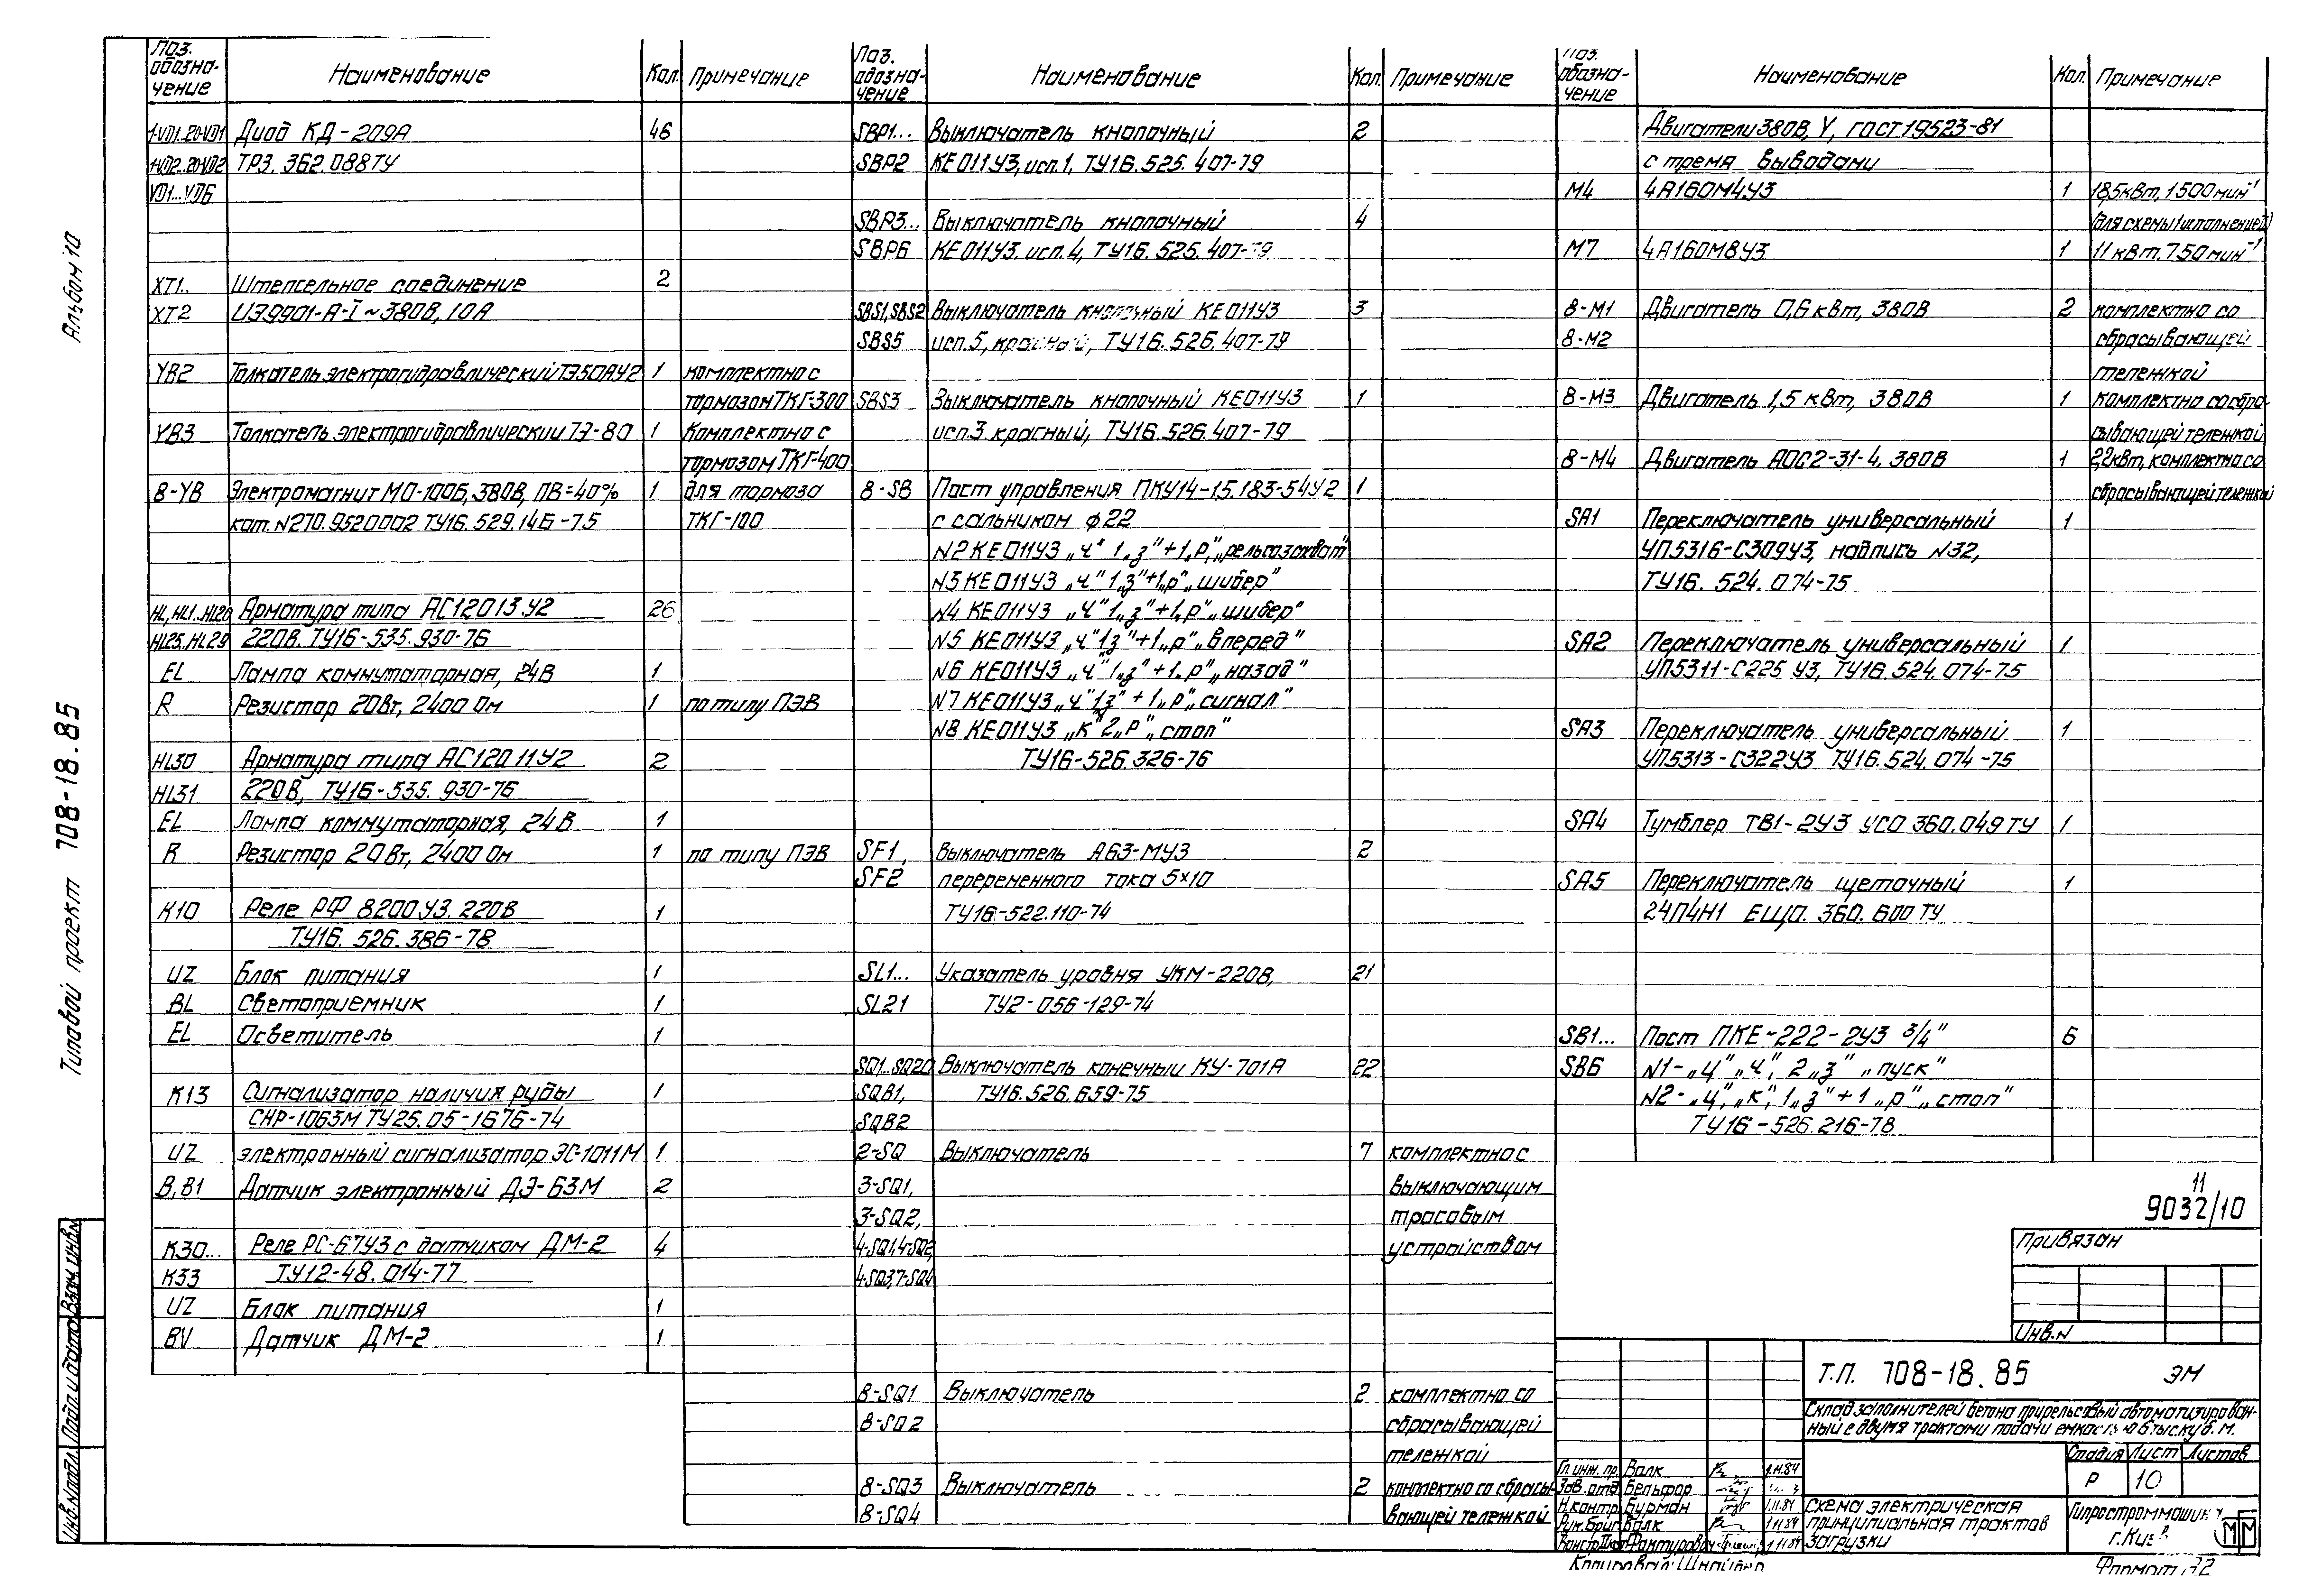 Альбом 10
Типовой проект 708-18.85
Взам.инв.N
Подп. и дата
Инв.N подл.
Поз. обозна-чение | Наименование | Кол. | Примечание
1-VD1..20-VD1 | Диод КД-209А | 46
1-VD2..20-VD2 | ТР3.362.088ТУ
VD1...VD6
XT1.. | Штепсельное соединение | 2
XT2 | ИЭ9901-А-I ~380В, 10А
YB2 | Толкатель электрогидравлический ТЭ50АУ2 | 1 | комплектно с
тормозом ТКГ-300
YB3 | Толкатель электрогидравлический ТЭ-80 | 1 | Комплектно с
тормозом ТКГ-400
8-YB | Электромагнит МО-100Б, 380В, ПВ=40% | 1 | для тормоза
кат. N270.9520002 ТУ16.529.146-75 | ТКГ-100
HL, HL1..HL20 | Арматура типа АС12013У2 | 26
HL25..HL29 | 220В. ТУ16-535.930-76
EL | Лампа коммутаторная, 24В | 1
R | Резистор 20Вт, 2400 Ом | 1 | по типу ПЭВ
HL30 | Арматура типа АС12011У2 | 2
HL31 | 220В, ТУ16-535.930-76
EL | Лампа коммутаторная, 24В | 1
R | Резистор 20Вт, 2400 Ом | 1 | по типу ПЭВ
K10 | Реле РФ 8200У3. 220В | 1
ТУ16.526.386-78
UZ | Блок питания | 1
BL | Светоприемник | 1
EL | Осветитель | 1
K13 | Сигнализатор наличия руды | 1
СНР-1063М ТУ25.05-1676-74
UZ | электронный сигнализатор ЭС-1011М | 1
B, B1 | Датчик электронный ДЭ-63М | 2
K30... | Реле РС-67У3 с датчиком ДМ-2 | 4
K33 | ТУ12-48.014-77
UZ | Блок питания | 1
BV | Датчик ДМ-2 | 1
Поз. обозна-чение | Наименование | Кол. | Примечание
SBP1... | Выключатель кнопочный | 2
SBP2 | КЕ011У3, исп.1, ТУ16.526.407-79
SBP3... | Выключатель кнопочный | 4
SBP6 | КЕ011У3. исп.4, ТУ16.526.407-79
SBS1, SBS2 | Выключатель кнопочный КЕ011У3 | 3
SBS5 | исп.5, красный, ТУ16.526.407-79
SBS3 | Выключатель кнопочный КЕ011У3 | 1
исп.3. красный, ТУ16.526.407-79
8-SB | Пост управления ПКУ14-15.183-54У2 | 1
с сальником φ22
N2 КЕ011У3 „ч" 1„з"+1„р", „рельсозахват"
N3 КЕ011У3 „ч" 1„з"+1„р" „шибер"
N4 КЕ011У3 „ч" 1„з"+1„р" „шибер"
N5 КЕ011У3 „ч" 1„з"+1„р" „вперед"
N6 КЕ011У3 „ч" 1„з"+1„р" „назад"
N7 КЕ011У3 „ч" 1„з"+1„р" „сигнал"
N8 КЕ011У3 „к" 2„р" „стоп"
ТУ16-526.326-76
SF1, | Выключатель А63-МУ3 | 2
SF2 | переременного тока 5×10
ТУ16-522.110-74
SL1... | Указатель уровня УКМ-220В, | 21
SL21 | ТУ2-056-129-74
SQ1..SQ20 | Выключатель конечный КУ-701А | 22
SQB1, | ТУ16.526.659-75
SQB2
2-SQ | Выключатель | 7 | комплектно с
3-SQ1, | выключающим
3-SQ2, | тросовым
4-SQ1,4-SQ2, | устройством
4-SQ3,7-SQ4
8-SQ1 | Выключатель | 2 | комплектно со
8-SQ2 | сбрасывающей
тележкой
8-SQ3 | Выключатель | 2 | комплектно со сбрасы-
8-SQ4 | вающей тележкой
Поз. обозна-чение | Наименование | Кол. | Примечание
Двигатели 380В, Y, ГОСТ 19523-81
с тремя выводами
М4 | 4А160М4У3 | 1 | 18,5кВт, 1500мин⁻¹
(для схемы 1 исполнение II)
М7 | 4А160М8У3 | 1 | 11 кВт. 750мин⁻¹
8-М1 | Двигатель 0,6 кВт, 380В | 2 | комплектно со
8-М2 | сбрасывающей
тележкой
8-М3 | Двигатель 1,5 кВт, 380В | 1 | комплектно со сбра-
сывающей тележкой
8-М4 | Двигатель АОС2-31-4, 380В | 1 | 2,2кВт, комплектно со
сбрасывающей тележкой
SA1 | Переключатель универсальный | 1
УП5316-С309У3, надпись N32,
ТУ16.524.074-75
SA2 | Переключатель универсальный | 1
УП5311-С225 У3, ТУ16.524.074-75
SA3 | Переключатель универсальный | 1
УП5313-С322У3 ТУ16.524.074-75
SA4 | Тумблер ТВ1-2У3 УСО 360.049 ТУ | 1
SA5 | Переключатель щеточный | 1
24П4Н1 ЕЩ0.360.600 ТУ
SB1... | Пост ПКЕ-222-2У3 3/4" | 6
SB6 | N1-„ц" „ч", 2„з" „пуск"
N2-„ц", „к", 1„з"+1„р" „стоп"
ТУ16-526.216-78
11
9032/10
Привязан
Инв.N
Т.П. 708-18.85 ЭМ
Склад заполнителей бетона прирельсовый автоматизирован-
ный с двумя трактами подачи емкостью 6 тыс.куб.м.
Стадия Лист Листов
Р 10
Гл. инж. пр. Валк 1.11.84
Зав. отд. Бельфор
Н.контр. Бурман 1.11.84
Рук.бриг. Валк 1.11.84
Констр. Фактурович 1.11.84
Схема электрическая
принципиальная трактов
загрузки
Гипростроммашина
г.Киев
Копировал: Шнайдер
Формат А2